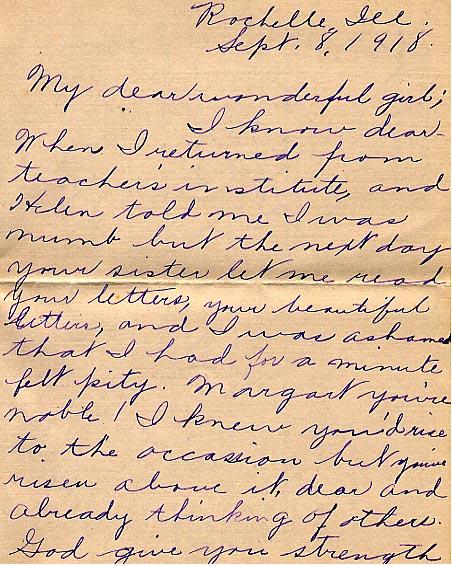 Rochelle, Ill.
Sept. 8, 1918.
My dear wonderful girl;
I know dear-
When I returned from
teacher's institute, and
Helen told me I was
numb but the next day
your sister let me read
your letters, your beautiful
letters, and I was ashamed
that I had for a minute
felt pity. Margart you're
noble! I knew you'd rise
to the occasion but you've
risen above it, dear and
already thinking of others.
God give you strength